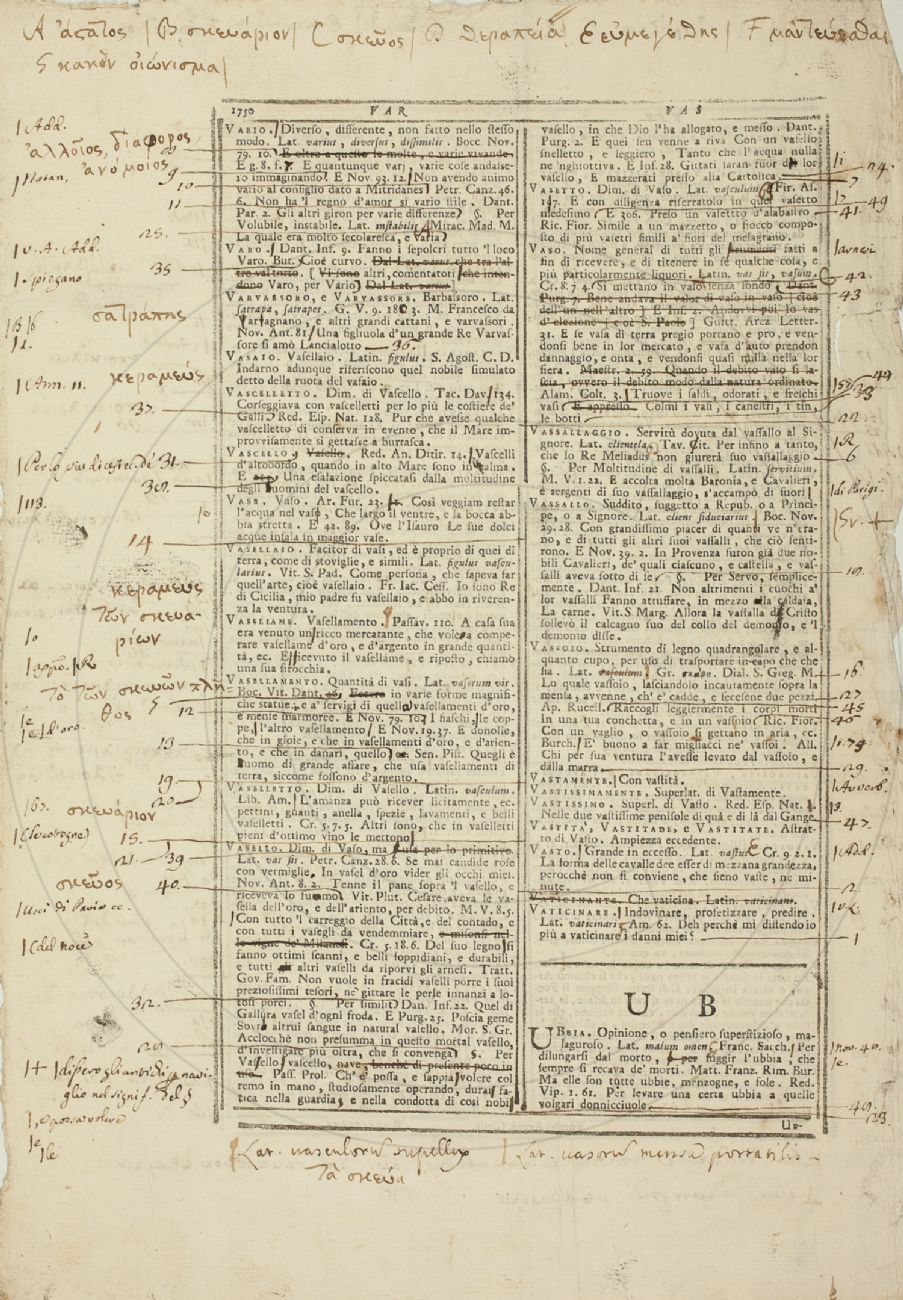 A ἄστατος | B. σκευάριον | C σκεῦος | D θεραπεία E εὐμεγέθης | F μαντεύεσθαι
οἰώνισμα
1750 VAR VAS
| Add.
ἀλλοῖος, διάφορος,
ἀνόμοιος
VARIO. Diverso, differente, non fatto nello stesso
modo. Lat. varius, diversus, dissimilis. Bocc. Nov.
79. 10. E oltre a questo le molte, e varie vivande.
E g. 8. f. 7. E quaintunque varj, varie cose andasse-
ro immaginando. E Nov. 93. 12. Non avendo animo
vario al consiglio dato a Mitridanes. Petr. Canz. 46.
6. Non ha 'l regno d'amor sì vario stile. Dant.
Par. 2. Gli altri giron per varie differenze. §. Per
Volubile, instabile. Lat. instabilis. Mirac. Mad. M.
La quale era molto secolaresca, e varia.
VARO. Dant. Inf. 9. Fanno i sepolcri tutto 'l loco
Varo. But. Cioè curvo. Dal Lat. varus, che tra l'al-
tre val torto. [ Vi sono altri comentatori che inten-
dono Varo, per Vario. Dal Lat. varus ]
VARVASSORO, e VARVASSORE. Barbasoro. Lat.
satrapa, satrapes. G. V. 9. 180 3. M. Francesco da
Vartagnano, e altri grandi cattani, e varvassori.
Nov. Ant. 81. Una figliuola d'un grande Re Varvas-
sore si amò Lancialotto 36.
VASAIO. Vasellaio. Latin. figulus. S. Agost. C. D.
Indarno adunque riferiscono quel nobile simulato
detto della ruota del vasaio.
VASCELLETTO. Dim. di Vascello. Tac. Dav. 134.
Corseggiava con vascelletti per lo più le costiere de'
Galli. Red. Esp. Nat. 128. Pur che avesse qualche
vascelletto di conserva in evento, che il Mare im-
provvisamente si gettasse a burrasca.
VASCELLO, Vasello. Red. An. Ditir. 14. Vascelli
d'altobordo, quando in alto Mare sono in calma.
Una esalazione spiccatasi dalla moltitudine
degli uomini del vascello.
VASE. Vaso. Ar. Fur. 23. Così veggiam restar
l'acqua nel vaso, Che largo il ventre, e la bocca ab-
bia stretta. E 42. 89. Ove l'Isauro Le sue dolci
acque insala in maggior vase.
VASELLAIO. Facitor di vasi, ed è proprio di quei di
terra, come di stoviglie, e simili. Lat. figulus vascu-
larius. Vit. S. Pad. Come persona, che sapeva far
quell'arte, cioè vasellaio. Fr. Iac. Cess. Io sono Re
di Cicilia, mio padre fu vasellaio, e abbo in riveren-
za la ventura.
VASELLAME. Vasellamento. Passav. 110. A casa sua
era venuto un ricco mercatante, che volea compe-
rare vasellame d'oro, e d'argento in grande quanti-
tà, ec. E ricevuto il vasellame, e riposto, chiamò
una sua sirocchia.
VASELLAMENTO. Quantità di vasi. Lat. vasorum vis.
Boc. Vit. Dant. Fecero in varie forme magnifi-
che statue, e a' servigi di quello vasellamenti d'oro,
e mense marmoree. E Nov. 79. 10. I fiaschi, le cop-
pe, l'altro vasellamento. E Nov. 19. 37. E donolle,
che in gioie, e che in vasellamenti d'oro, e d'arien-
to, e che in danari, quello ec. Sen. Pist. Quegli è
uomo di grande affare, che usa vasellamenti di
terra, siccome fossono d'argento.
VASELLETTO. Dim. di Vasello. Latin. vasculum.
Lib. Am. L'amanza può ricever licitamente, ec.
pettini, guanti, anella, spezie, lavamenti, e belli
vaselletti. Cr. 5. 7. 5. Altri sono, che in vaselletti
pieni d'ottimo vino le mettono.
VASELLO. Dim. di Vaso, ma s'usa per lo primitivo.
Lat. vas sis. Petr. Canz. 28. 6. Se mai candide rose
con vermiglie, In vasel d'oro vider gli occhi miei.
Nov. Ant. 8. 2. Tenne il pane sopra 'l vasello, e
riceveva lo fummo. Vit. Plut. Cesare aveva le va-
sella dell'oro, e dell'ariento, per debito. M. V. 8. 5.
Con tutto 'l carreggio della Città, e del contado, e
con tutti i vasegli da vendemmiare, e misonsi nel-
le vigne de' Milanesi. Cr. 5. 18. 6. Del suo legno si
fanno ottimi scanni, e belli soppidiani, e durabili,
e tutti altri vaselli da riporvi gli arnesi. Tratt.
Gov. Fam. Non vuole in fracidi vaselli porre i suoi
preziosissimi tesori, ne gittare le perle innanzi a lo-
tosi porci. §. Per similit. Dan. Inf. 22. Quel di
Gallura vasel d'ogni froda. E Purg. 25. Poscia geme
Sovr' altrui sangue in natural vasello. Mor. S. Gr.
Acciocchè non presumma in questo mortal vasello,
d'investigare più oltra, che si convenga. §. Per
Vasello, vascello, nave, benchè di presente poco in
uso. Pass. Prol. Ch' e' possa, e sappia volere col
remo in mano, studiosamente operando, durar fa-
tica nella guardia, e nella condotta di così nobil
vasello, in che Dio l'ha allogato, e messo. Dant.
Purg. 2. E quei sen venne a riva Con un vasello
snelletto, e leggiero, Tanto che l'acqua nulla
ne 'nghiottiva. E Inf. 28. Gittati saran fuor di lor
vasello, E mazzerati presso alla Cattolica.
VASETTO. Dim. di Vaso. Lat. vasculum. Fir. As.
147. E con diligenza riserratolo in quel vasetto
medesimo. E 306. Preso un vasettto d'alabastro
Ric. Fior. Simile a un mazzetto, o fiocco compo-
sto di più vasetti simili a' fiori del melagrano.
VASO. Nome general di tutti gli strumenti fatti a
fin di ricevere, e di ritenere in se qualche cosa, e
più particolarmente liquori. Latin. vas sis, vasum.
Cr. 8. 7 4. Si mettano in vaso senza fondo. Dant.
Purg. 7. Bene andava il valor di vaso in vaso [ cioè
dell'un nell'altro ] E Inf. 2. Andovvi poi lo vas
d'elezione [ cioè S. Paolo ] Guitt. Arez. Letter.
31. E se vasa di terra pregio portano e pro, e ven-
donsi bene in lor mercato, e vasa d'auro prendon
dannaggio, e onta, e vendonsi quasi nulla nella lor
fiera. Maestr. 2. 59. Quando il debito vaso si la-
scia, ovvero il debito modo dalla natura ordinato.
Alam. Colt. 3. Truove i saldi, odorati, e freschi
vasi. E appresso. Colmi i vasi, i canestri, i tin,
le botti.
VASSALLAGGIO. Servitù dovuta dal vassallo al Si-
gnore. Lat. clientela. Tav. Rit. Per infino a tanto,
che lo Re Meliadus non giurerà suo vassallaggio
§. Per Moltitudine di vassalli. Latin. servitium.
M. V. 1. 22. E accolta molta Baronía, e Cavalieri,
e sergenti di suo vassallaggio, s'accampò di fuori.
VASSALLO. Suddito, suggetto a Repub. o a Princi-
pe, o a Signore. Lat. cliens fiduciarius. Boc. Nov.
29. 28. Con grandissimo piacer di quanti ve n'era-
no, e di tutti gli altri suoi vassalli, che ciò senti-
rono. E Nov. 39. 2. In Provenza furon già due no-
bili Cavalieri, de' quali ciascuno, e castella, e vas-
salli aveva sotto di se. §. Per Servo, semplice-
mente. Dant. Inf. 21. Non altrimenti i cuochi a'
lor vassalli Fanno attuffare, in mezzo alla caldaia,
La carne. Vit. S. Marg. Allora la vassalla di Cristo
sollevò il calcagno suo del collo del demonio, e 'l
demonio disse.
VASSOIO. Strumento di legno quadrangolare, e al-
quanto cupo, per uso di trasportare in capo che che
sia. Lat. vasculum. Gr. σκάφη. Dial. S. Gieg. M.
Lo quale vassoio, lasciandolo incautamente sopra la
mensa, avvenne, ch' e' cadde, e fecesene due pezzi.
Ap. Rucell. Raccogli leggiermente i corpi morti
In una tua conchetta, e in un vassoio. Ric. Fior.
Con un vaglio, o vassoio si gettano in aria, ec.
Burch. E' buono a far migliacci ne' vassoi. All.
Chi per sua ventura l'avesse levato dal vassoio, e
dalla marra.
VASTAMENTE. Con vastità.
VASTISSIMAMENTE. Superlat. di Vastamente.
VASTISSIMO. Superl. di Vasto. Red. Esp. Nat.
Nelle due vastissime penisole di quà e di là dal Gange.
VASTITA', VASTITADE, e VASTITATE. Astrat-
to di Vasto. Ampiezza eccedente.
VASTO. Grande in eccesso. Lat. vastus. Cr. 9 2. 1.
La forma delle cavalle dee esser di mezzana grandezza,
perocchè non si conviene, che sieno vaste, ne mi-
nute.
VATICINANTE. Che vaticina. Latin. vaticinans.
VATICINARE. Indovinare, profetizzare, predire.
Lat. vaticinari. Am. 62. Deh perchè mi distendo io
più a vaticinare i danni miei?
U B
UBBIA. Opinione, o pensiero superstizioso, ma-
laguroso. Lat. malum omen. Franc. Sacch. Per
dilungarsi dal morto, e per fuggir l'ubbìa, che
sempre si recava de' morti. Matt. Franz. Rim. Bur.
Ma elle son tutte ubbie, menzogne, e fole. Red.
Vip. 1. 61. Per levare una certa ubbia a quelle
volgari donnicciuole.
Ub-
9
10
11
25.
| v. A. Add.
35
| spiegano
σατράπης
κεραμεύς
| Ann. 11.
37.
31
30.
| 113.
14
κεραμεύς
τῶν σκευα-
ρίων
τὸ τῶν σκευῶν πλῆ-
θος
12
| d'oro
13
19
20
σκευάριον
15.
21. 39
σκεῦος
40.
32.
20
49
41
| arnesi
42.
43
44
33
22
| R
6
| di Parigi
10.
16
27
45
46
29.
| Avverb.
47.
| Add.
2.
1
| nov. 40.
40.
23.
| Lat. vasculorum supellex | Lat. vasorum mensa portabilis
τὰ σκεύη